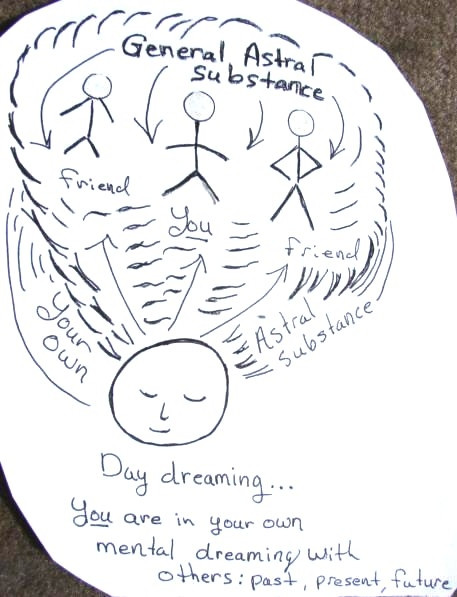 General Astral
substance
friend
You
friend
Your
own
Astral
substance
Day dreaming...
You are in your own
mental dreaming with
others: past, present, future